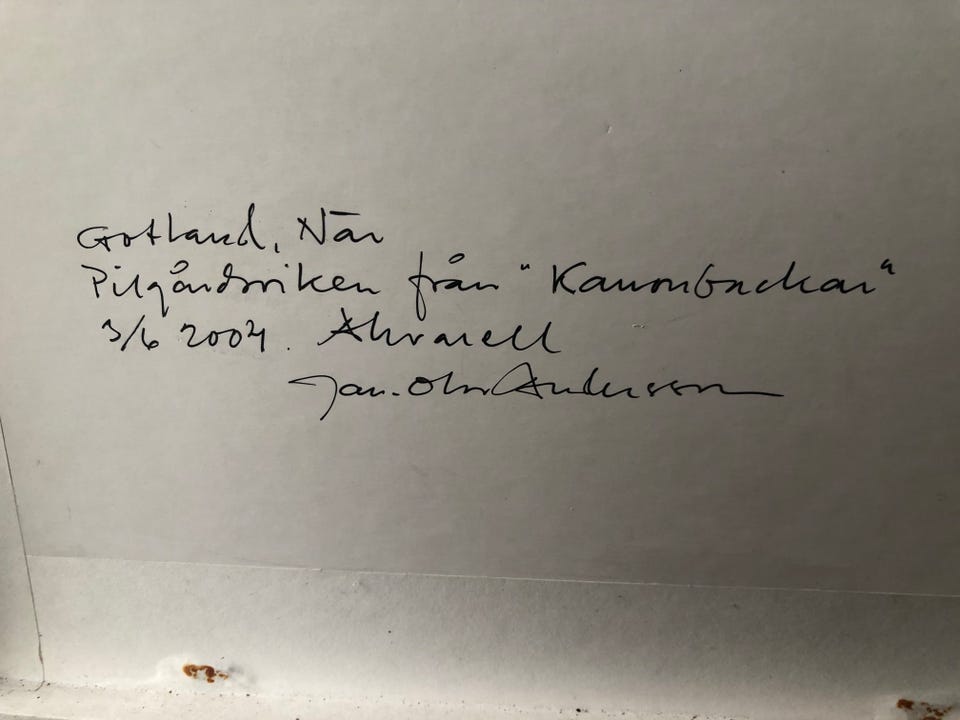 Gotland, När
Pilgårdsviken från "Kanonbackar"
3/6 2004. Akvarell
Jan-Olov Andersson